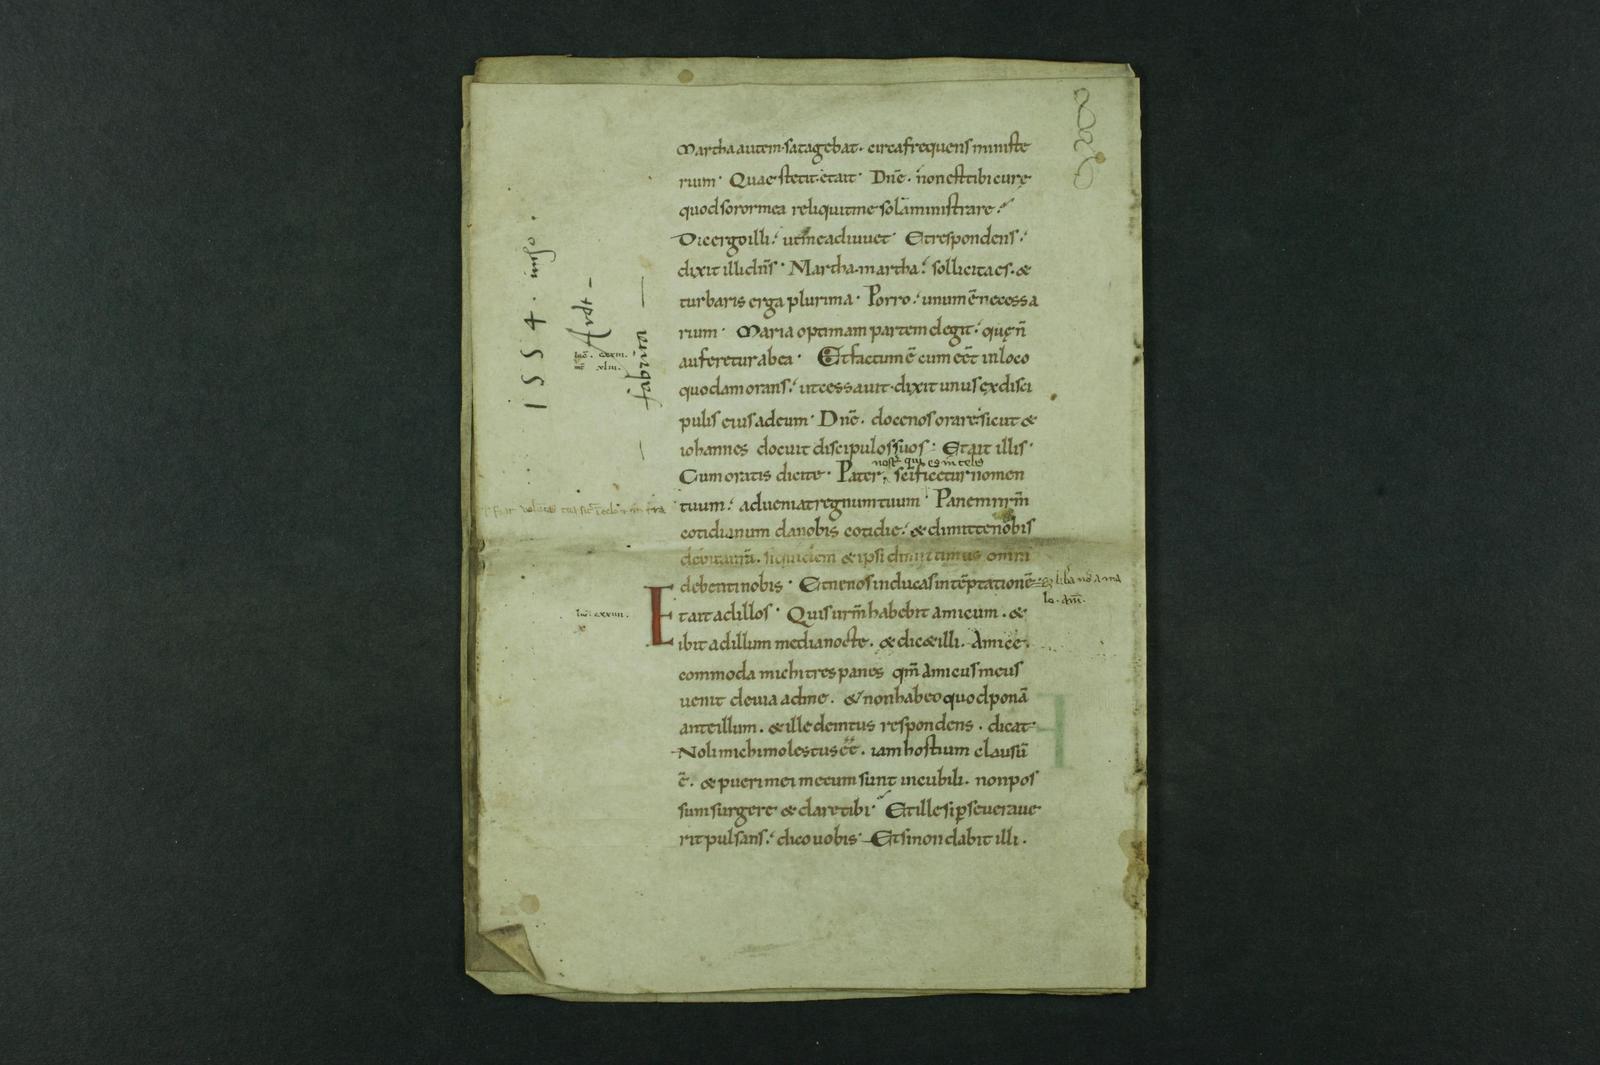 Martha autem satagebat· circa frequens ministe
rium· Quae stetit· et ait· Dnē· non est tibi curę
quod soror mea reliquit me solā ministrare·
Dic ergo illi· ut me adiuuet· Et respondens·
dixit illi dn̄s· Martha· martha· sollicita es· &
turbaris erga plurima· Porro· unum ē necessa
rium· Maria optimam partem elegit· quę n̄
auferetur ab ea· Et factum ē cum eēt in loco
quodam orans· ut cessauit· dixit unus ex disci
pulis eius ad eum· Dnē· doce nos orare· sicut &
iohannes docuit discipulos suos· Et ait illis·
nost̄ qui es in celis
Cum oratis dicite· Pater· scīficetur nomen
tuum· adueniat regnum tuum· Panem nrm̄
cotidianum da nobis cotidie· & dimitte nobis
debita nrā· siquidem & ipsi dimittimus omni
debenti nobis· Et ne nos inducas in tēptationē
lib̄a nos a ma
lo· am̄·
Et ait ad illos· Quis urm̄ habebit amicum· &
ibit ad illum media nocte· & dic& illi· Amice·
commoda michi tres panes qm̄ amicus meus
uenit de uia ad me· & non habeo quod ponā
ante illum· & ille deintus respondens· dicat
Noli michi molestus eēt· iam hostium clausū
ē· & pueri mei mecum sunt in cubili· non pos
sum surgere & dare tibi· Et ille si p̱seueraue
rit pulsans· dico uobis· Et si non dabit illi·
1554
fabrica
xlii·